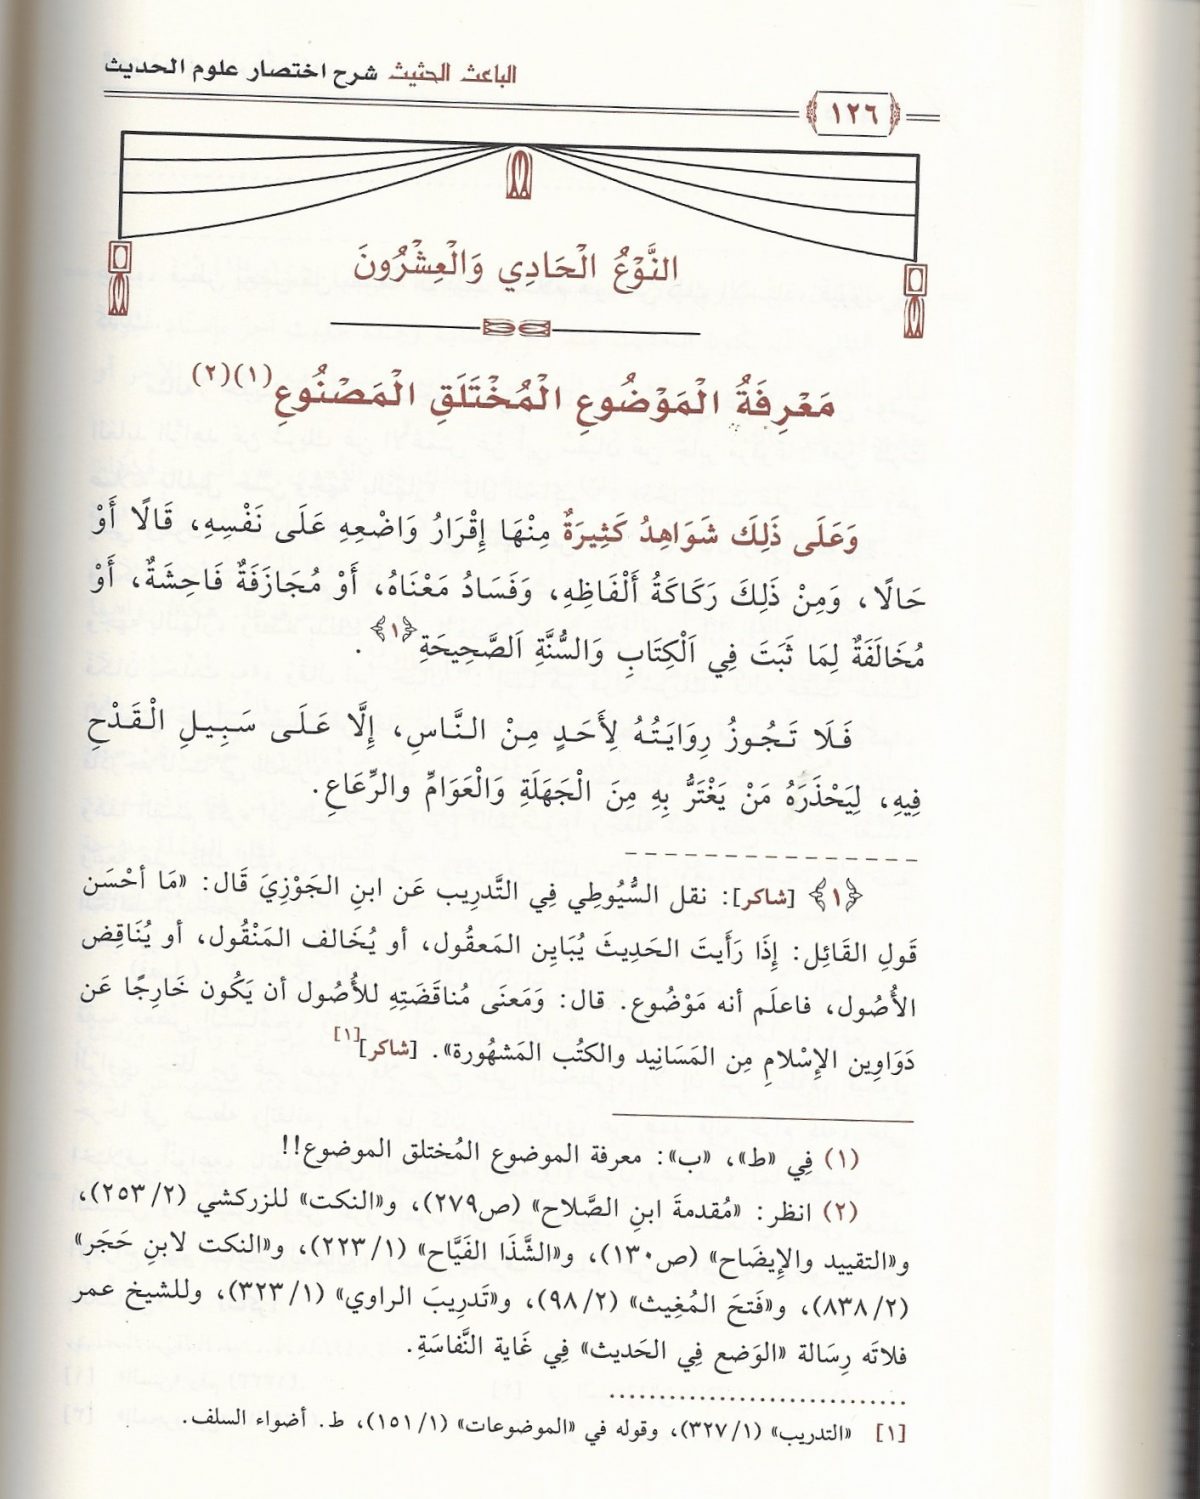 الباعث الحثيث شرح اختصار علوم الحديث
١٢٦
النَّوْعُ الْحَادِي وَالْعِشْرُونَ
مَعْرِفَةُ الْمَوْضُوعِ الْمُخْتَلَقِ الْمَصْنُوعِ(١)(٢)
وَعَلَى ذَلِكَ شَوَاهِدُ كَثِيرَةٌ مِنْهَا إِقْرَارُ وَاضْعِهِ عَلَى نَفْسِهِ، قَالًا أَوْ
حَالًا، وَمِنْ ذَلِكَ رَكَاكَةُ أَلْفَاظِهِ، وَفَسَادُ مَعْنَاهُ، أَوْ مُجَازَفَةٌ فَاحِشَةٌ، أَوْ
مُخَالَفَةٌ لِمَا ثَبَتَ فِي اَلْكِتَابِ وَالسُّنَّةِ اَلصَّحِيحَةِ﴿١﴾.
فَلَا تَجُوزُ رِوَايَتُهُ لِأَحَدٍ مِنْ النَّاسِ، إِلَّا عَلَى سَبِيلِ الْقَدْحِ
فِيهِ، لِيَحْذَرَهُ مَنْ يَغْتَرُّ بِهِ مِنَ الْجَهَلَةِ وَالْعَوَامِّ والرِّعَاعِ.
﴿١﴾ [شاكر]: نقل السُّيُوطِي فِي التَّدرِيب عَن ابنِ الجَوْزِيَ قَال: «مَا أحْسَن
قَولِ القَائِل: إِذَا رَأَيتَ الحَدِيثَ يُبَايِن المَعقُول، أو يُخَالف المَنْقُول، أو يُنَاقِض
الأُصُول، فاعلَم أنه مَوْضُوع. قال: وَمَعنَى مُناقَضَتِهِ للأُصُول أن يَكُون خَارِجًا عَن
دَوَاوِين الإِسْلامِ مِن المَسَانِيد والكتُب المَشهُورة». [شاكر][١]
(١) فِي «ط»، «ب»: معرفة الموضوع المُختلق الموضوع!!
(٢) انظر: «مُقدمةَ ابنِ الصَّلاح» (ص٢٧٩)، و«النكت» للزركشي (٢/٢٥٣)،
و«التقييد والإِيضَاح» (ص١٣٠)، و«الشَّذَا الفَيَّاح» (١/٢٢٣)، و«النكت لابنِ حَجَر»
(٢/٨٣٨)، و«فَتحَ المُغِيث» (٢/٩٨)، و«تَدرِيبَ الراوي» (١/٣٢٣)، وللشيخ عمر
فلاتَه رِسَالة «الوَضع فِي الحَديث» فِي غَاية النَّفاسَةِ.
[١] «التدريب» (١/٣٢٧)، وقوله في «الموضوعات» (١/١٥١)، ط. أضواء السلف.